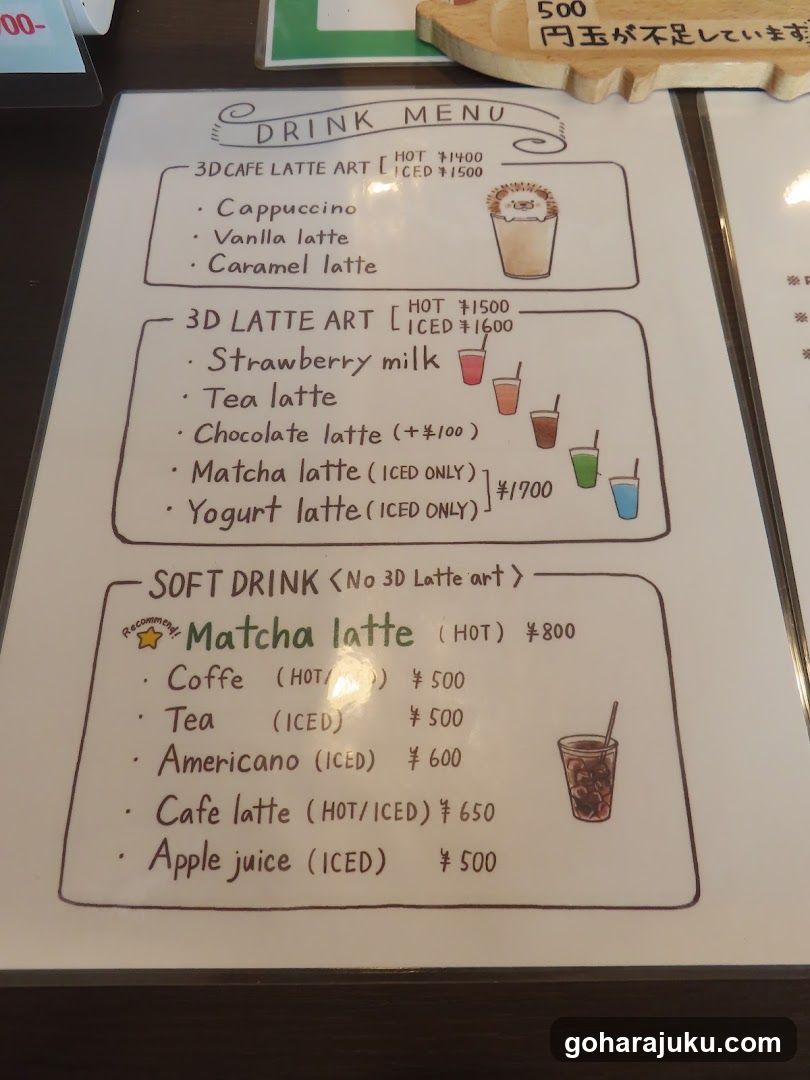 00-
500
円玉が不足しています
DRINK MENU
3D CAFE LATTE ART [ HOT ¥1400
ICED ¥1500
・Cappuccino
・Vanlla latte
・Caramel latte
3D LATTE ART [ HOT ¥1500
ICED ¥1600
・Strawberry milk
・Tea latte
・Chocolate latte (+¥100)
・Matcha latte (ICED ONLY)
・Yogurt latte (ICED ONLY) ] ¥1700
SOFT DRINK <No 3D Latte art>
Recommend! Matcha latte (HOT) ¥800
・Coffe (HOT/ ) ¥500
・Tea (ICED) ¥500
・Americano (ICED) ¥600
・Cafe latte (HOT/ICED) ¥650
・Apple juice (ICED) ¥500
※
※
※
goharajuku.com